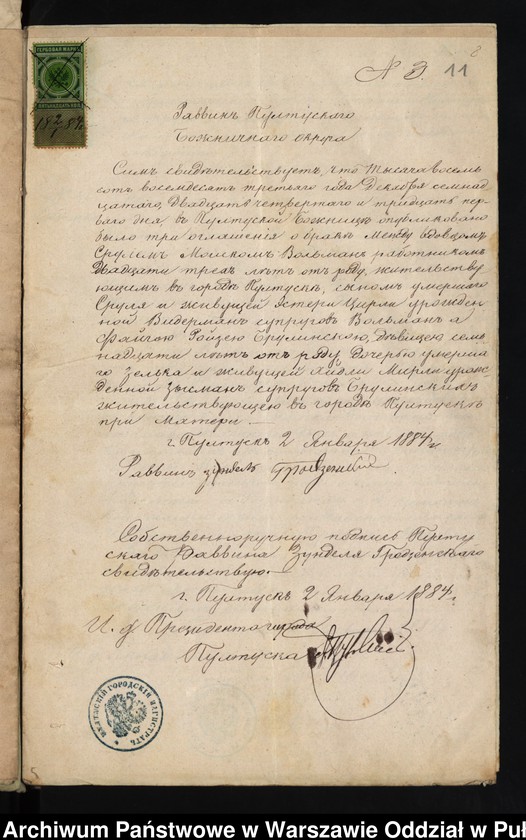 ГЕРБОВАЯ МАРКА
18 2/I 84
N 3. 11
Раввинъ Пултускаго
Божничнаго округа
Симъ свидѣтельствуетъ, что тысяча восемь
сотъ восемдесятъ третьяго года Декабря семнад
цатаго, двадцать четвертаго и тридцать пер
ваго дня, въ Пултуской Божницѣ опубликовано
было три оглашенія о бракѣ между вдовцомъ
Срулемъ Мошкомъ Вольманъ работникомъ
двадцати трехъ лѣтъ отъ роду, жительству
ющимъ въ городѣ Пултускѣ, сыномъ умершаго
Сруля и живущей Эстеры Цирли урожден
ной Видерманъ супруговъ Вольманъ а
Файгою Ройзею Брулинскою, дѣвицею сем
надцати лѣтъ отъ роду, дочерью умерша
го Зелька и живущей Хадли Мирли урож
денной Зысманъ супруговъ Брулинскихъ
жительствующею въ городѣ Пултускѣ
при матери.
г. Пултускъ 2 Января 1884 г.
Раввинъ Зундель Гродзенскій
Собственноручную подпись Пулту
скаго Раввина Зунделя Гродзенскаго
свидѣтельствую.
г. Пултускъ 2 Января 1884 г.
И. д. Президента города
Пултуска
ГОРОДСКІЙ МАГИСТРАТЪ
Archiwum Państwowe w Warszawie Oddział w Puł